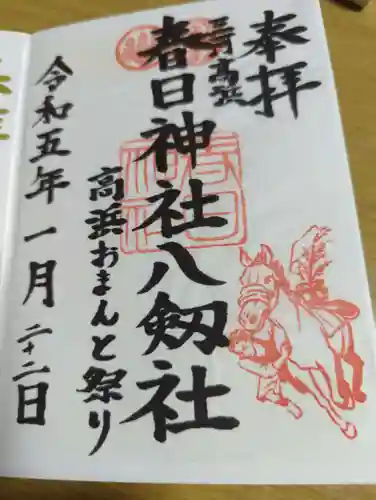 奉拝
三州高浜
春日神社八剱社
高浜おまんと祭り
令和五年一月二十二日